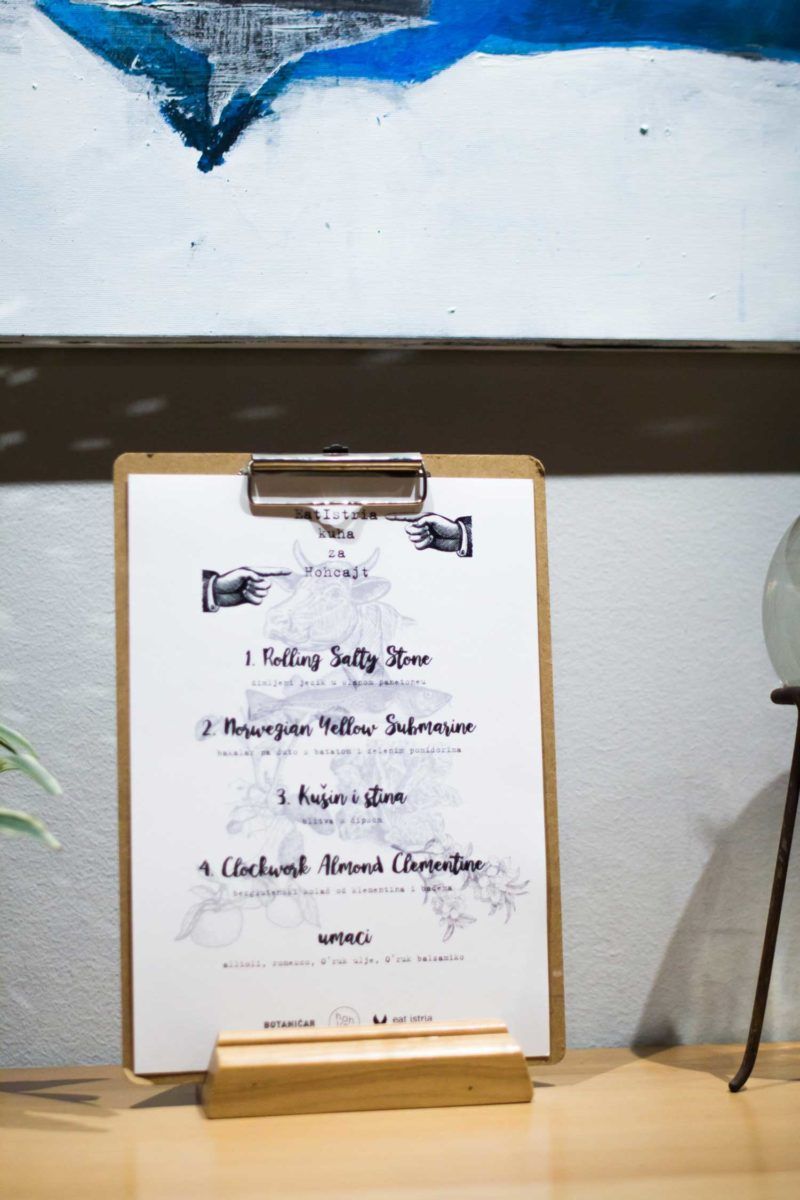 EatIstria
kuha
za
Hohcajt
1. Rolling Salty Stone
dimljeni jezik u slanom panetoneu
2. Norwegian Yellow Submarine
bakalar na žuto s batatom i zelenim pomidorima
3. Kušin i ština
blitva s čipsom
4. Clockwork Almond Clementine
bezglutenski kolač od klementina i badema
umaci
allioli, romesco, O'ruk ulje, O'ruk balsamiko
BOTANIČAR
eat istria